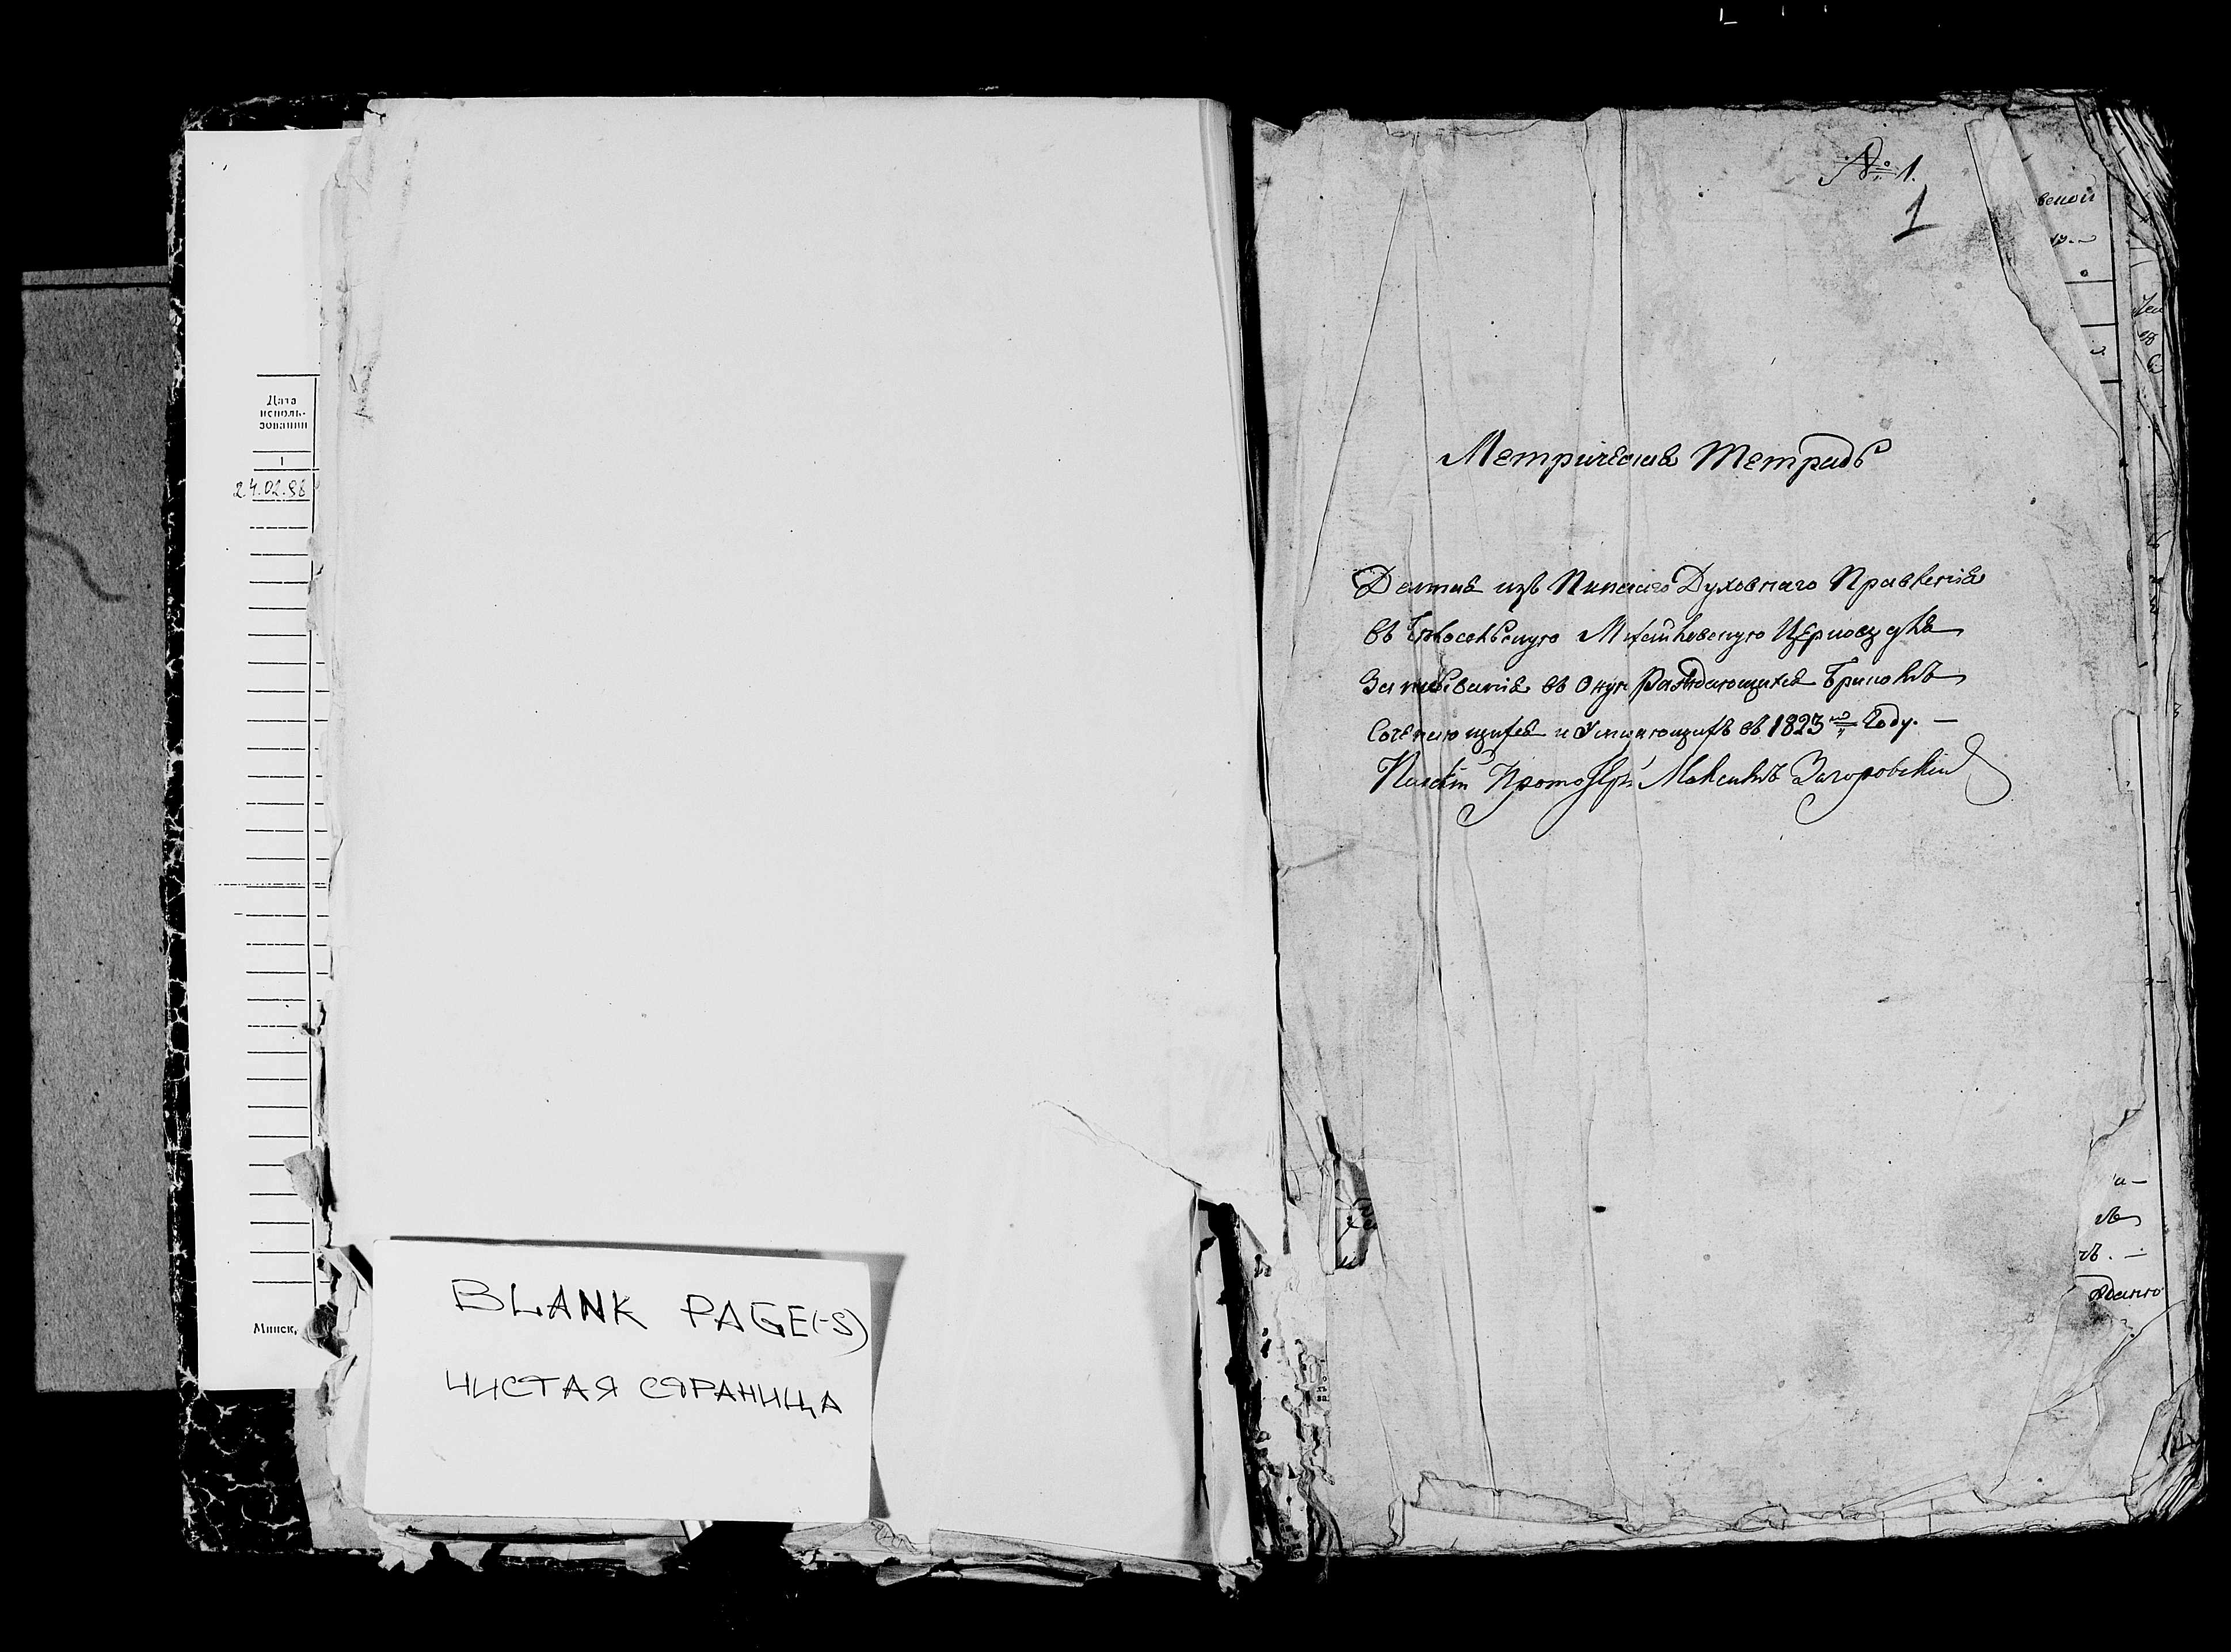 Дата
исполь-
зования
1
24.02.98
Минск,
BLANK PAGE(-S)
ЧИСТАЯ СТРАНИЦА
№ 1.
1
Метрическая Тетрадь
Данная изъ Пинскаго Духовнаго Правленія
въ Михайловскую Церковь для
Записыванія въ Оную Раждающихся Бракомъ
Сочетающихся и Умирающихъ въ 1823мъ Году. —
Пинскій Протоіерей Максимъ Загоровскій